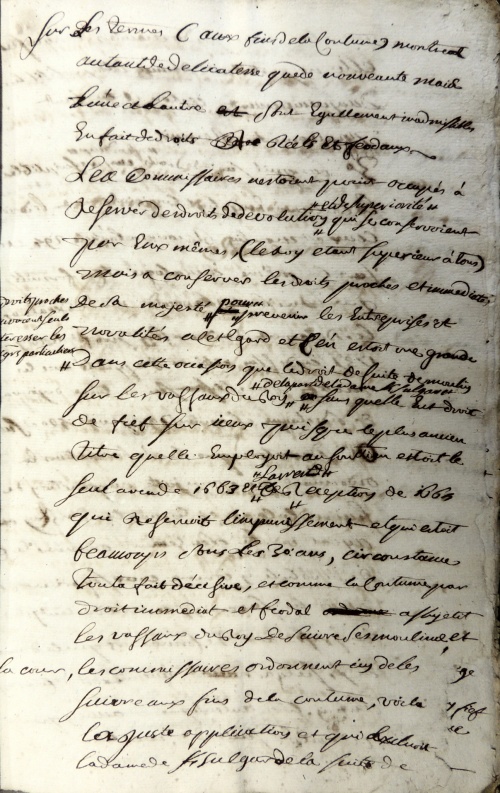 Sur des termes (aux fins de la Coutume) montrent
autant de delicatesse que de nouveauté mais
l'une et l'autre sont Egallement inadmissibles
En fait de droits Réels Et feodaux
Les Commissaires n'estoient point occupés à
Reserver des droits de devolution "et de superiorité" qui se conservoient
par Eux mêmes, (le Roy etant Superieur à tous)
mais a conserver les droits proches et immediats
de Sa majesté pour prevenir les Entreprises et
novalités a cet Egard et s'en estoit une grande
droits proches
interesser les
particuliers
Dans cette occasion que le droit de suite de moulin
sur les vassaux du Roy "de la part de la dame de" sans quelle eut droit
de fief sur iceux puisque le plus ancien
titre quelle Employoit au soutien estoit le
seul aveu de 1663 et de Reception de 1663
qui Reservoit l'impunissement et qui estoit
beaucoup sous les 30 ans, circonstance
toute fait décisive, et comme la Coutume par
droit immediat et feodal assujetit
les vassaux du Roy de suivre ses moulins et
la cour, les commissaires ordonnent de les
suivre aux fins de la coutume, voila
fief
la juste application et qui Excluoit
la dame de la suite de